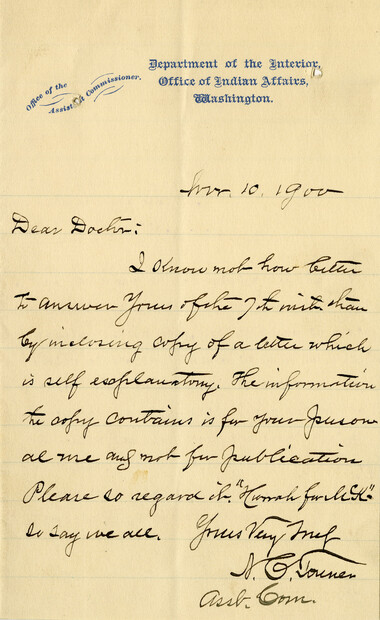 Office of the
Assistant Commissioner.
Department of the Interior,
Office of Indian Affairs,
Washington.
Nov. 10. 1900
Dear Doctor:
I know not how better
to answer Yours of the 7th inst. than
by inclosing copy of a letter which
is self explanatory. The information
the copy contains is for your person
al use and not for publication
Please so regard it. "Hurrah for McK"
so say we all. Yours Very Truly
A. C. Tonner
Asst. Com.